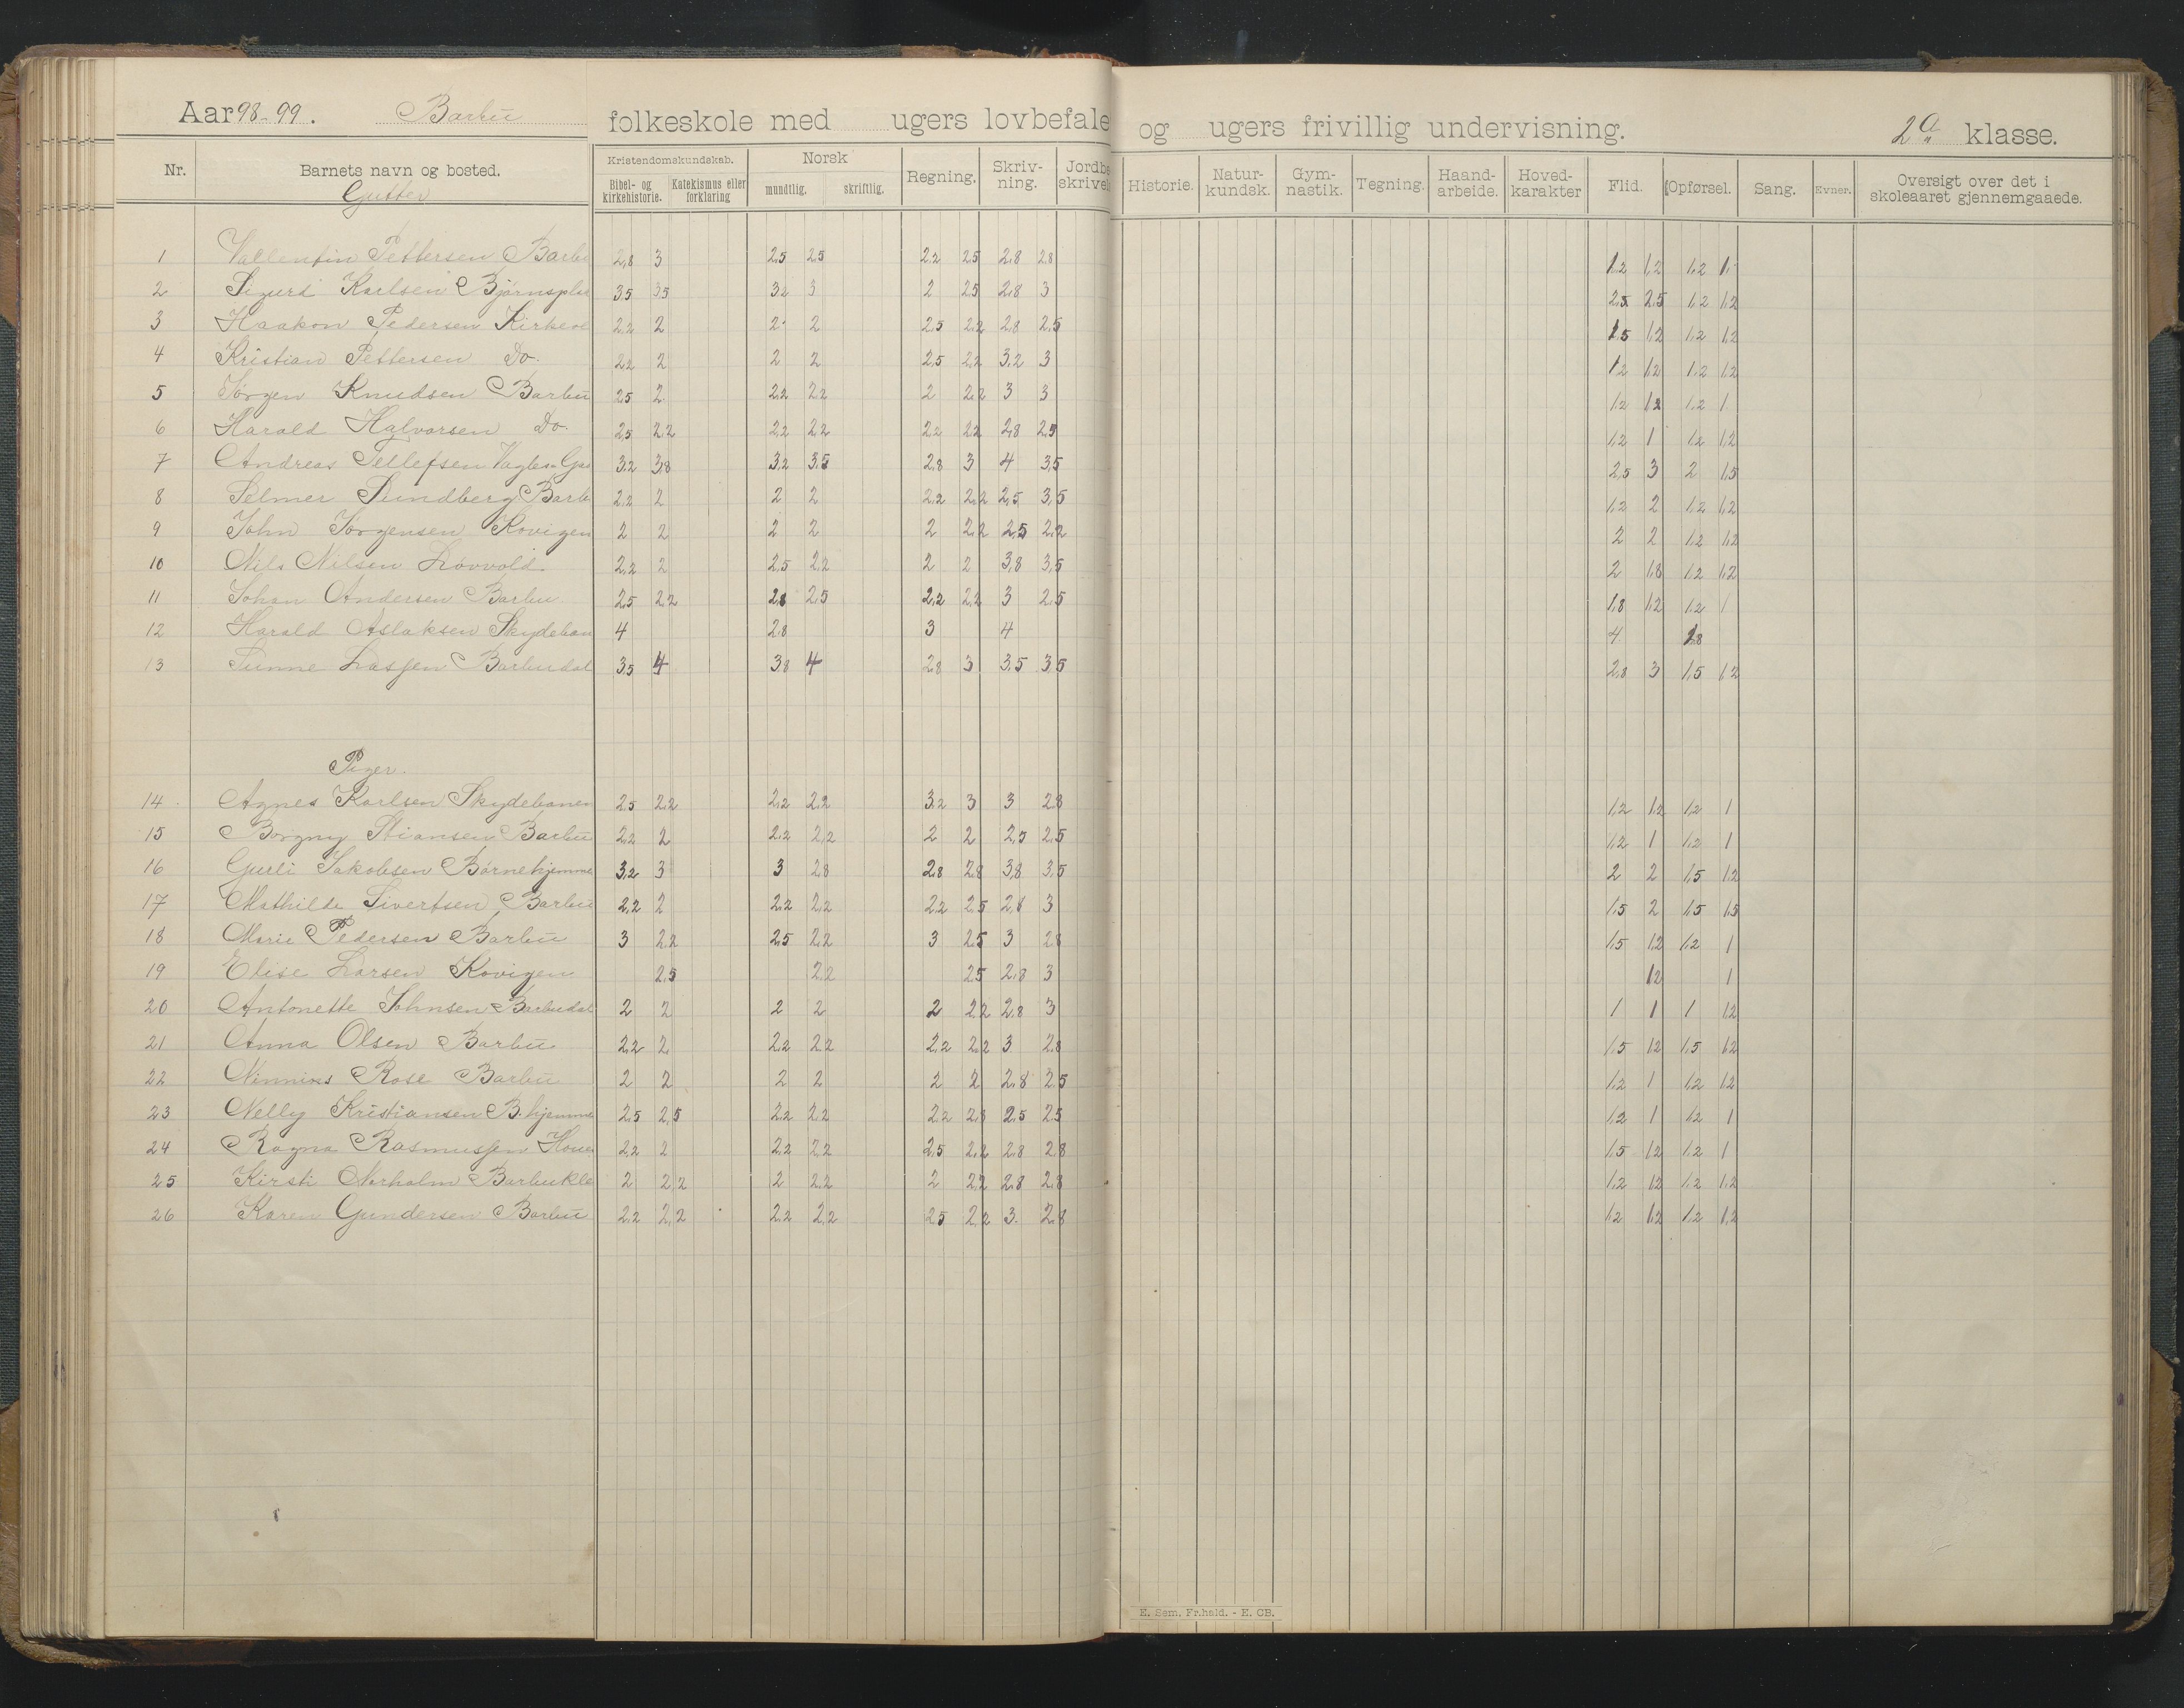 Aar 98-99. Barbu folkeskole med ugers lovbefale og ugers frivillig undervisning. 2a klasse.
Nr. Barnets navn og bosted. Kristendomskundskab. Bibel- og kirkehistorie. Katekismus eller forklaring Norsk mundtlig. skriftlig. Regning. Skriv-ning. Jordbe skrivels Historie. Natur-kundsk. Gym-nastik. Tegning. Haand-arbeide. Hoved-karakter Flid. Opførsel. Sang. Evner. Oversigt over det i skoleaaret gjennemgaaede.
Gutter
1 Vallentin Pettersen Barbu 2,8 3 2,5 2,5 2,2 2,5 2,8 2,8 1,2 1,2 1,2 1,
2 Sigurd Karlsen Bjørnsplas 3,5 3,5 3,2 3 2 2,5 2,8 3 2,5 2,5 1,2 1,2
3 Haakon Pedersen 2,2 2 2 2 2,5 2,2 2,8 2,5 1,5 1,2 1,2 1,2
4 Kristian Pettersen Do. 2,2 2 2 2 2,5 2,2 3,2 3 1,2 1,2 1,2 1,2
5 Jørgen Knudsen Barbu 2,5 2 2,2 2,2 2 2,2 3 3 1,2 1,2 1,2 1
6 Harald Halvorsen Do. 2,5 2,2 2,2 2,2 2,2 2,2 2,8 2,5 1,2 1 1,2 1,2
7 Andreas Tellefsen 3,2 3,8 3,2 3,5 2,8 3 4 3,5 2,5 3 2 1,5
8 Selmer Sundberg Barb 2,2 2 2 2 2,2 2,2 2,5 3,5 1,2 2 1,2 1,2
9 John Jørgensen Kovigen 2 2 2 2 2 2,2 2,5 2,2 2 2 1,2 1,2
10 Nils Nilsen Løvvold 2,2 2 2,5 2,2 2 2 3,8 3,5 2 1,8 1,2 1,2
11 Johan Andersen Barbu 2,5 2,2 2,8 2,5 2,2 2,2 3 2,5 1,8 1,2 1,2 1
12 Harald Aslaksen Skydeban 4 2,8 3 4 4 1,8
13 Sunne Lassen Barbudal 3,5 4 3,8 4 2,8 3 3,5 3,5 2,8 3 1,5 1,2
Piger.
14 Agnes Karlsen Skydebanen 2,5 2,2 2,2 2,2 3,2 3 3 2,8 1,2 1,2 1,2 1
15 Borgny Stiansen Barbu 2,2 2 2,2 2,2 2 2 2,5 2,5 1,2 1 1,2 1
16 Gurli Jakobsen Børnehjemme 3,2 3 3 2,8 2,8 2,8 3,8 3,5 2 2 1,5 1,2
17 Mathilde Sivertsen Barbu 2,2 2 2,2 2,2 2,2 2,5 2,8 3 1,5 2 1,5 1,5
18 Marie Pedersen Barbu 3 2,2 2,5 2,2 3 2,5 3 2,8 1,5 1,2 1,2 1
19 Elise Larsen Kovigen 2,5 2,2 2,5 2,8 3 1,2 1
20 Antonette Johnsen Barbudal 2 2 2 2 2 2,2 2,8 3 1 1 1 1,2
21 Anna Olsen Barbu 2,2 2 2,2 2,2 2,2 2,2 3 2,8 1,5 1,2 1,5 1,2
22 Rose Barbu 2 2 2 2 2 2 2,8 2,5 1,2 1 1,2 1,2
23 Nelly Kristiansen B.hjemme 2,5 2,5 2,2 2,2 2,2 2,8 2,5 2,5 1,2 1 1,2 1
24 Ragna Rasmussen 2,2 2 2,2 2,2 2,5 2,2 2,8 2,8 1,5 1,2 1,2 1
25 Kirsti Norholm Barbukle 2 2,2 2 2,2 2 2,2 2,8 2,8 1,2 1,2 1,2 1,2
26 Karen Gundersen Barbu 2,2 2,2 2,2 2,2 2,5 2,2 3 2,8 1,2 1,2 1,2 1,2
E. Sem. Fr.hald. - E. CB.